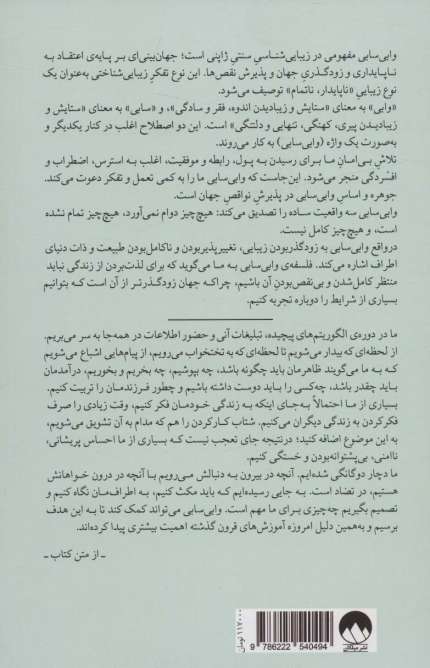 وابی‌سابی مفهومی در زیبایی‌شناسیِ سنتیِ ژاپنی است؛ جهان‌بینی‌ای بر پایه‌ی اعتقاد به
ناپایداری و زودگذریِ جهان و پذیرش نقص‌ها. این نوع تفکرِ زیبایی‌شناختی به‌عنوان یک
نوع زیباییِ «ناپایدار، ناتمام» توصیف می‌شود.
«وابی» به معنای «ستایش و زیبادیدن اندوه، فقر و سادگی»، و «سابی» به معنای «ستایش و
زیبادیدن پیری، کهنگی، تنهایی و دلتنگی» است. این دو اصطلاح اغلب در کنار یکدیگر و
به‌صورت یک واژه (وابی‌سابی) به کار می‌روند.
تلاشِ بی‌امانِ ما برای رسیدن به پول، رابطه و موفقیت، اغلب به استرس، اضطراب و
افسردگی منجر می‌شود. این‌جاست که وابی‌سابی ما را به کمی تعمل و تفکر دعوت می‌کند.
جوهره و اساسِ وابی‌سابی در پذیرشِ نواقصِ جهان است.
وابی‌سابی سه واقعیت ساده را تصدیق می‌کند: هیچ‌چیز دوام نمی‌آورد، هیچ‌چیز تمام نشده
است، و هیچ‌چیز کامل نیست.
درواقع وابی‌سابی به زودگذربودن زیبایی، تغییرپذیربودن و ناکامل‌بودن طبیعت و ذات دنیای
اطراف اشاره می‌کند. فلسفه‌ی وابی‌سابی به ما می‌گوید که برای لذت‌بردن از زندگی نباید
منتظر کامل‌شدن و بی‌نقص‌بودنِ آن باشیم، چراکه جهان زودگذرتر از آن است که بتوانیم
بسیاری از شرایط را دوباره تجربه کنیم.
ما در دوره‌ی الگوریتم‌های پیچیده، تبلیغات آنی و حضور اطلاعات در همه‌جا به سر می‌بریم.
از لحظه‌ای که بیدار می‌شویم تا لحظه‌ای که به تختخواب می‌رویم، از پیام‌هایی اشباع می‌شویم
که به ما می‌گویند ظاهرمان باید چگونه باشد، چه بپوشیم، چه بخریم و بخوریم، درآمدمان
باید چقدر باشد، چه‌کسی را باید دوست داشته باشیم و چطور فرزندمان را تربیت کنیم.
بسیاری از ما احتمالاً به‌جای اینکه به زندگی خودمان فکر کنیم، وقت زیادی را صرف
فکرکردن به زندگی دیگران می‌کنیم. شتاب کارکردن را هم که مدام به آن تشویق می‌شویم،
به این موضوع اضافه کنید؛ درنتیجه جای تعجب نیست که بسیاری از ما احساس پریشانی،
ناامنی، بی‌پشتوانه‌بودن و خستگی کنیم.
ما دچار دوگانگی شده‌ایم. آنچه در بیرون به دنبالش می‌رویم با آنچه در درون خواهانش
هستیم، در تضاد است. به جایی رسیده‌ایم که باید مکث کنیم، به اطراف‌مان نگاه کنیم و
تصمیم بگیریم چه‌چیزی برای ما مهم است. وابی‌سابی می‌تواند کمک کند تا به این هدف
برسیم و به‌همین دلیل امروزه آموزش‌های قرون گذشته اهمیت بیشتری پیدا کرده‌اند.
ـ از متن کتاب ـ
۱۱۷۰۰۰ تومان
9 786222 540494
نشر میلکان